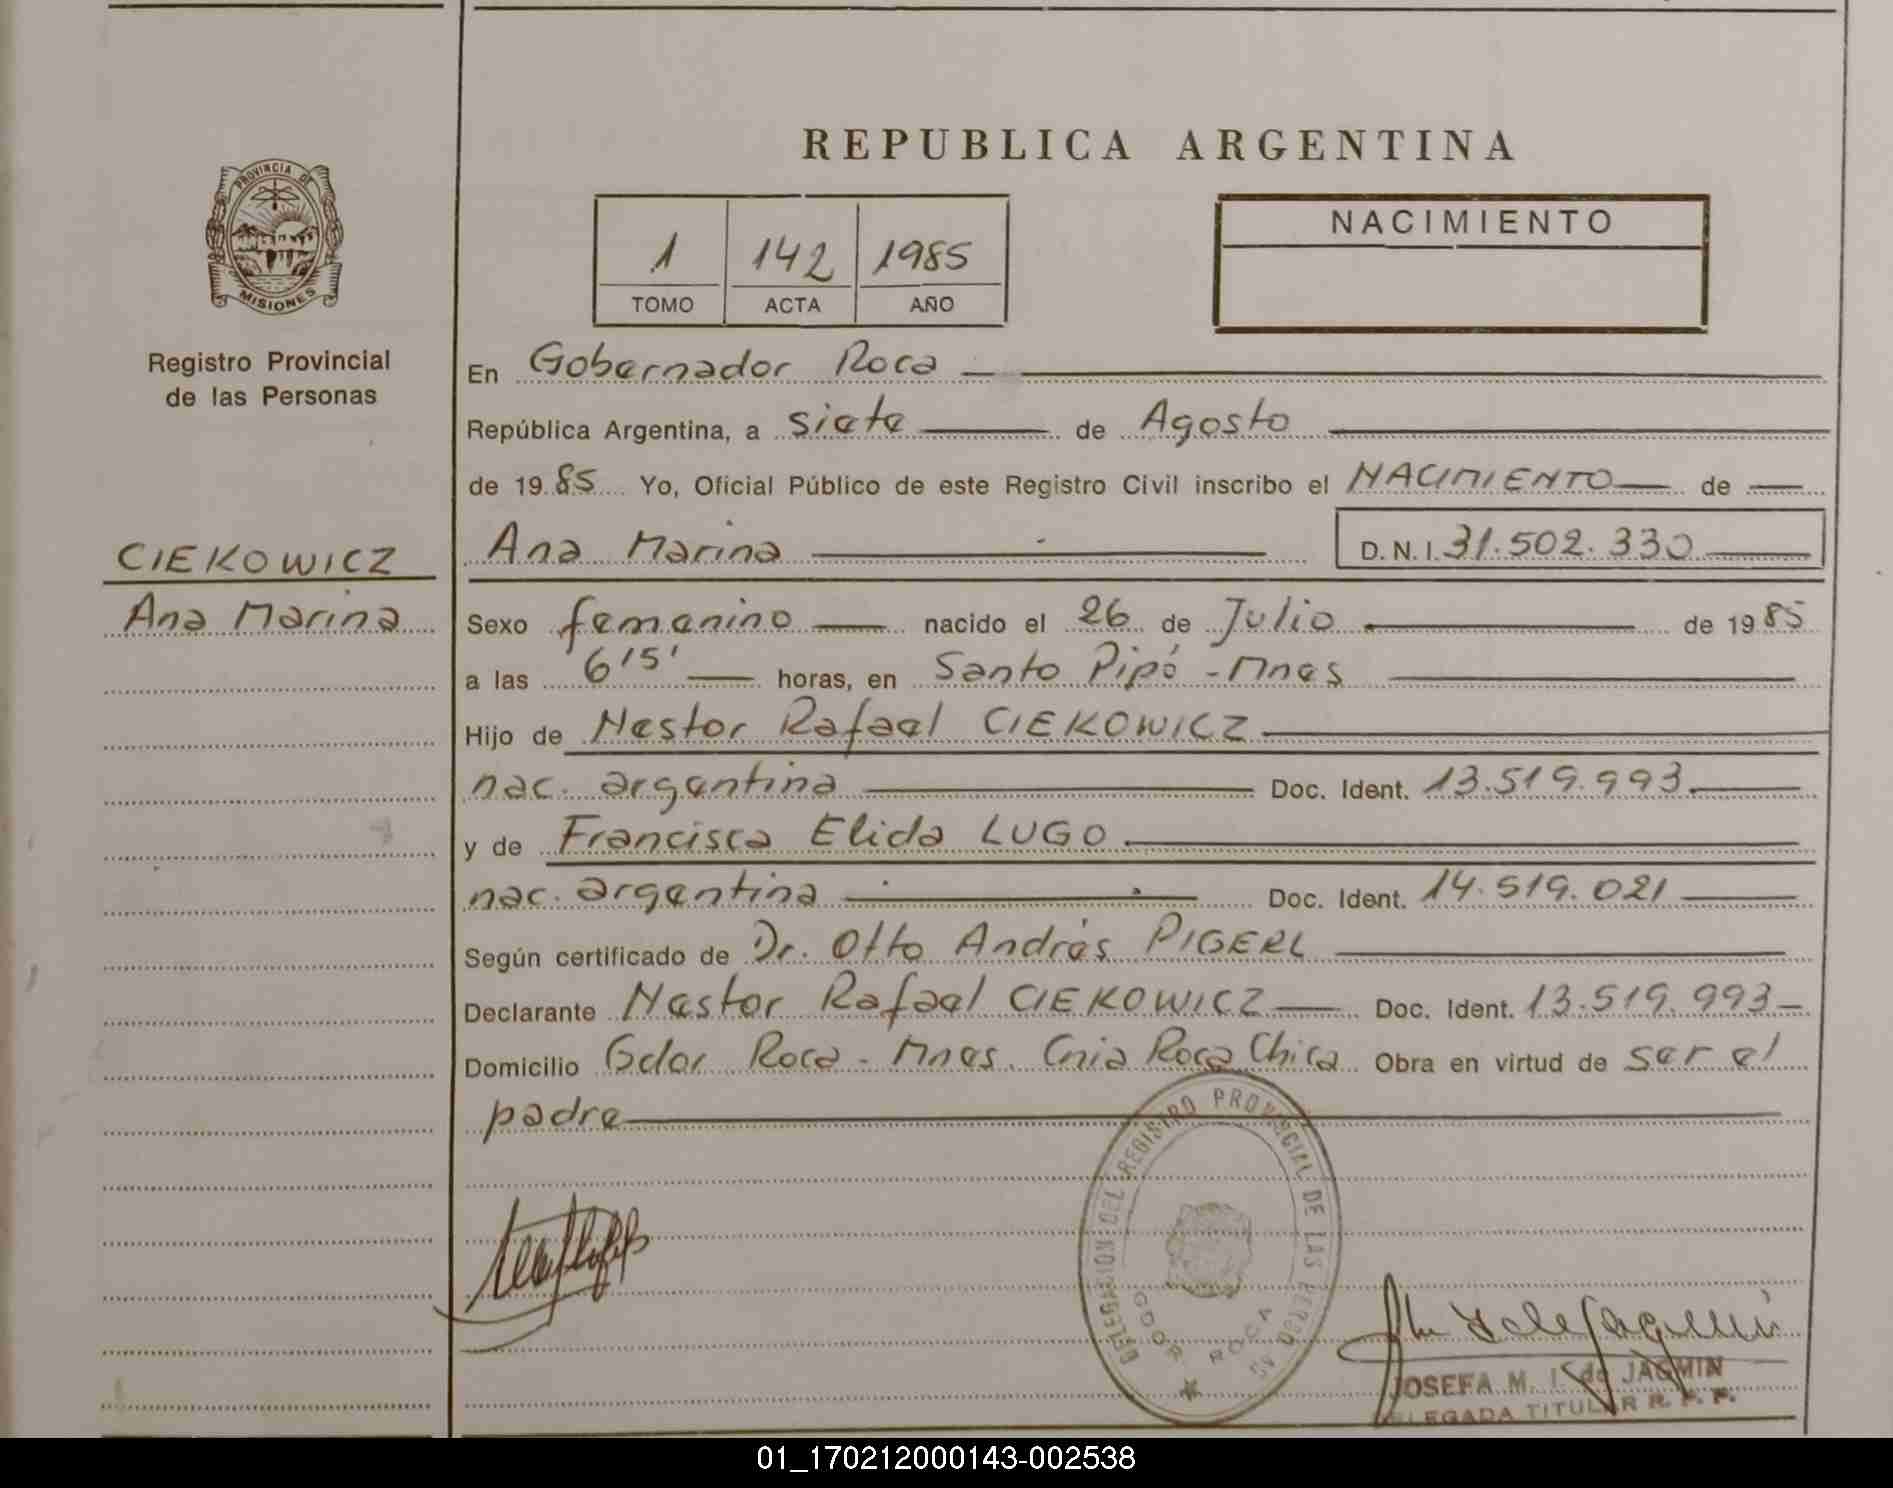 REPUBLICA ARGENTINA
PROVINCIA DE
MISIONES
Registro Provincial
de las Personas
1 142 1985
TOMO ACTA AÑO
NACIMIENTO
En Gobernador Roca
República Argentina, a siete de Agosto
de 1985 Yo, Oficial Público de este Registro Civil inscribo el NACIMIENTO de
CIEKOWICZ
Ana Marina
Ana Marina D.N.I. 31.502.330
Sexo femenino nacido el 26 de Julio de 1985
a las 6'15' horas, en Santo Pipó - Mnes
Hijo de Nestor Rafael CIEKOWICZ
nac. argentina Doc. Ident. 13.519.993
y de Francisca Elida LUGO
nac. argentina Doc. Ident. 14.519.021
Según certificado de Dr. Otto Andrés PIGERL
Declarante Nestor Rafael CIEKOWICZ Doc. Ident. 13.519.993
Domicilio Gdor Roca - Mnes. Cnia Roca Chica Obra en virtud de ser el
padre
DELEGACION DEL REGISTRO PROVINCIAL DE LAS PERSONAS
GDOR ROCA
JOSEFA M. I. de JAGMIN
DELEGADA TITULAR R. P. P.
01_170212000143-002538